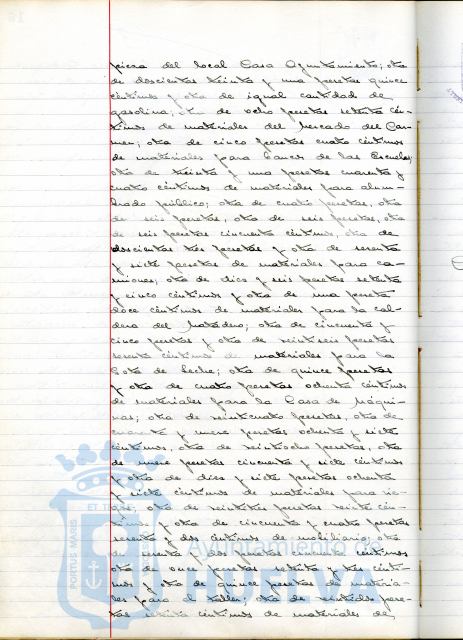 pieza del local Casa Ayuntamiento; otra
de doscientas treinta y una pesetas quince
céntimos y otra de igual cantidad de
gasolina; otra de ocho pesetas setenta cén-
timos de materiales del Mercado del Car-
men; otra de cinco pesetas cuatro céntimos
de materiales para bancos de las Escuelas;
otra de treinta y una pesetas cuarenta y
cuatro céntimos de materiales para alum-
brado público; otra de cuatro pesetas, otra
de seis pesetas, otra de seis pesetas, otra
de seis pesetas cincuenta céntimos, otra de
doscientas tres pesetas y otra de sesenta
y siete pesetas de materiales para ca-
miones; otra de diez y seis pesetas setenta
y cinco céntimos y otra de una peseta
doce céntimos de materiales para la cal-
dera del Matadero; otra de cincuenta y
cinco pesetas y otra de veintiseis pesetas
sesenta céntimos de materiales para la
Gota de Leche; otra de quince pesetas
y otra de cuatro pesetas ochenta céntimos
de materiales para la Casa de Máqui-
nas; otra de veinticuatro pesetas, otra de
cuarenta y nueve pesetas ochenta y siete
céntimos, otra de veintiocho pesetas, otra
de nueve pesetas cincuenta y siete céntimos
y otra de diez y siete pesetas ochenta
y siete céntimos de materiales para rie-
gos; otra de veintitres pesetas veinte cén-
timos y otra de cincuenta y cuatro pesetas
sesenta y dos céntimos de mobiliario; otra
de sesenta y dos pesetas céntimos
otra de once pesetas setenta y tres cénti-
mos y otra de quince pesetas de materia-
les para el taller; otra de veintidos pese-
tas setenta céntimos de materiales de
ET TERRAE
PORTUS MARIS
Ayuntamiento de
HUELVA